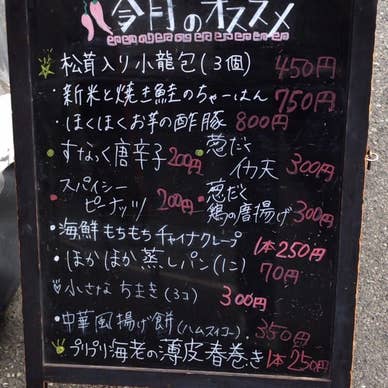 今月のオススメ
松茸入り小龍包(3個) 450円
・新米と焼き鮭のちゃーはん 750円
・ほくほくお芋の酢豚 800円
すなっく唐辛子 200円
葱だく
イカ天 300円
スパイシー
ピーナッツ 200円
葱だく
鶏の唐揚げ 300円
・海鮮もちもちチャイナクレープ 1本250円
・ほかほか蒸しパン(1コ) 70円
小さなちまき(3コ) 300円
・中華風揚げ餅(ハムスイコー) 350円
プリプリ海老の薄皮春巻き 1本250円